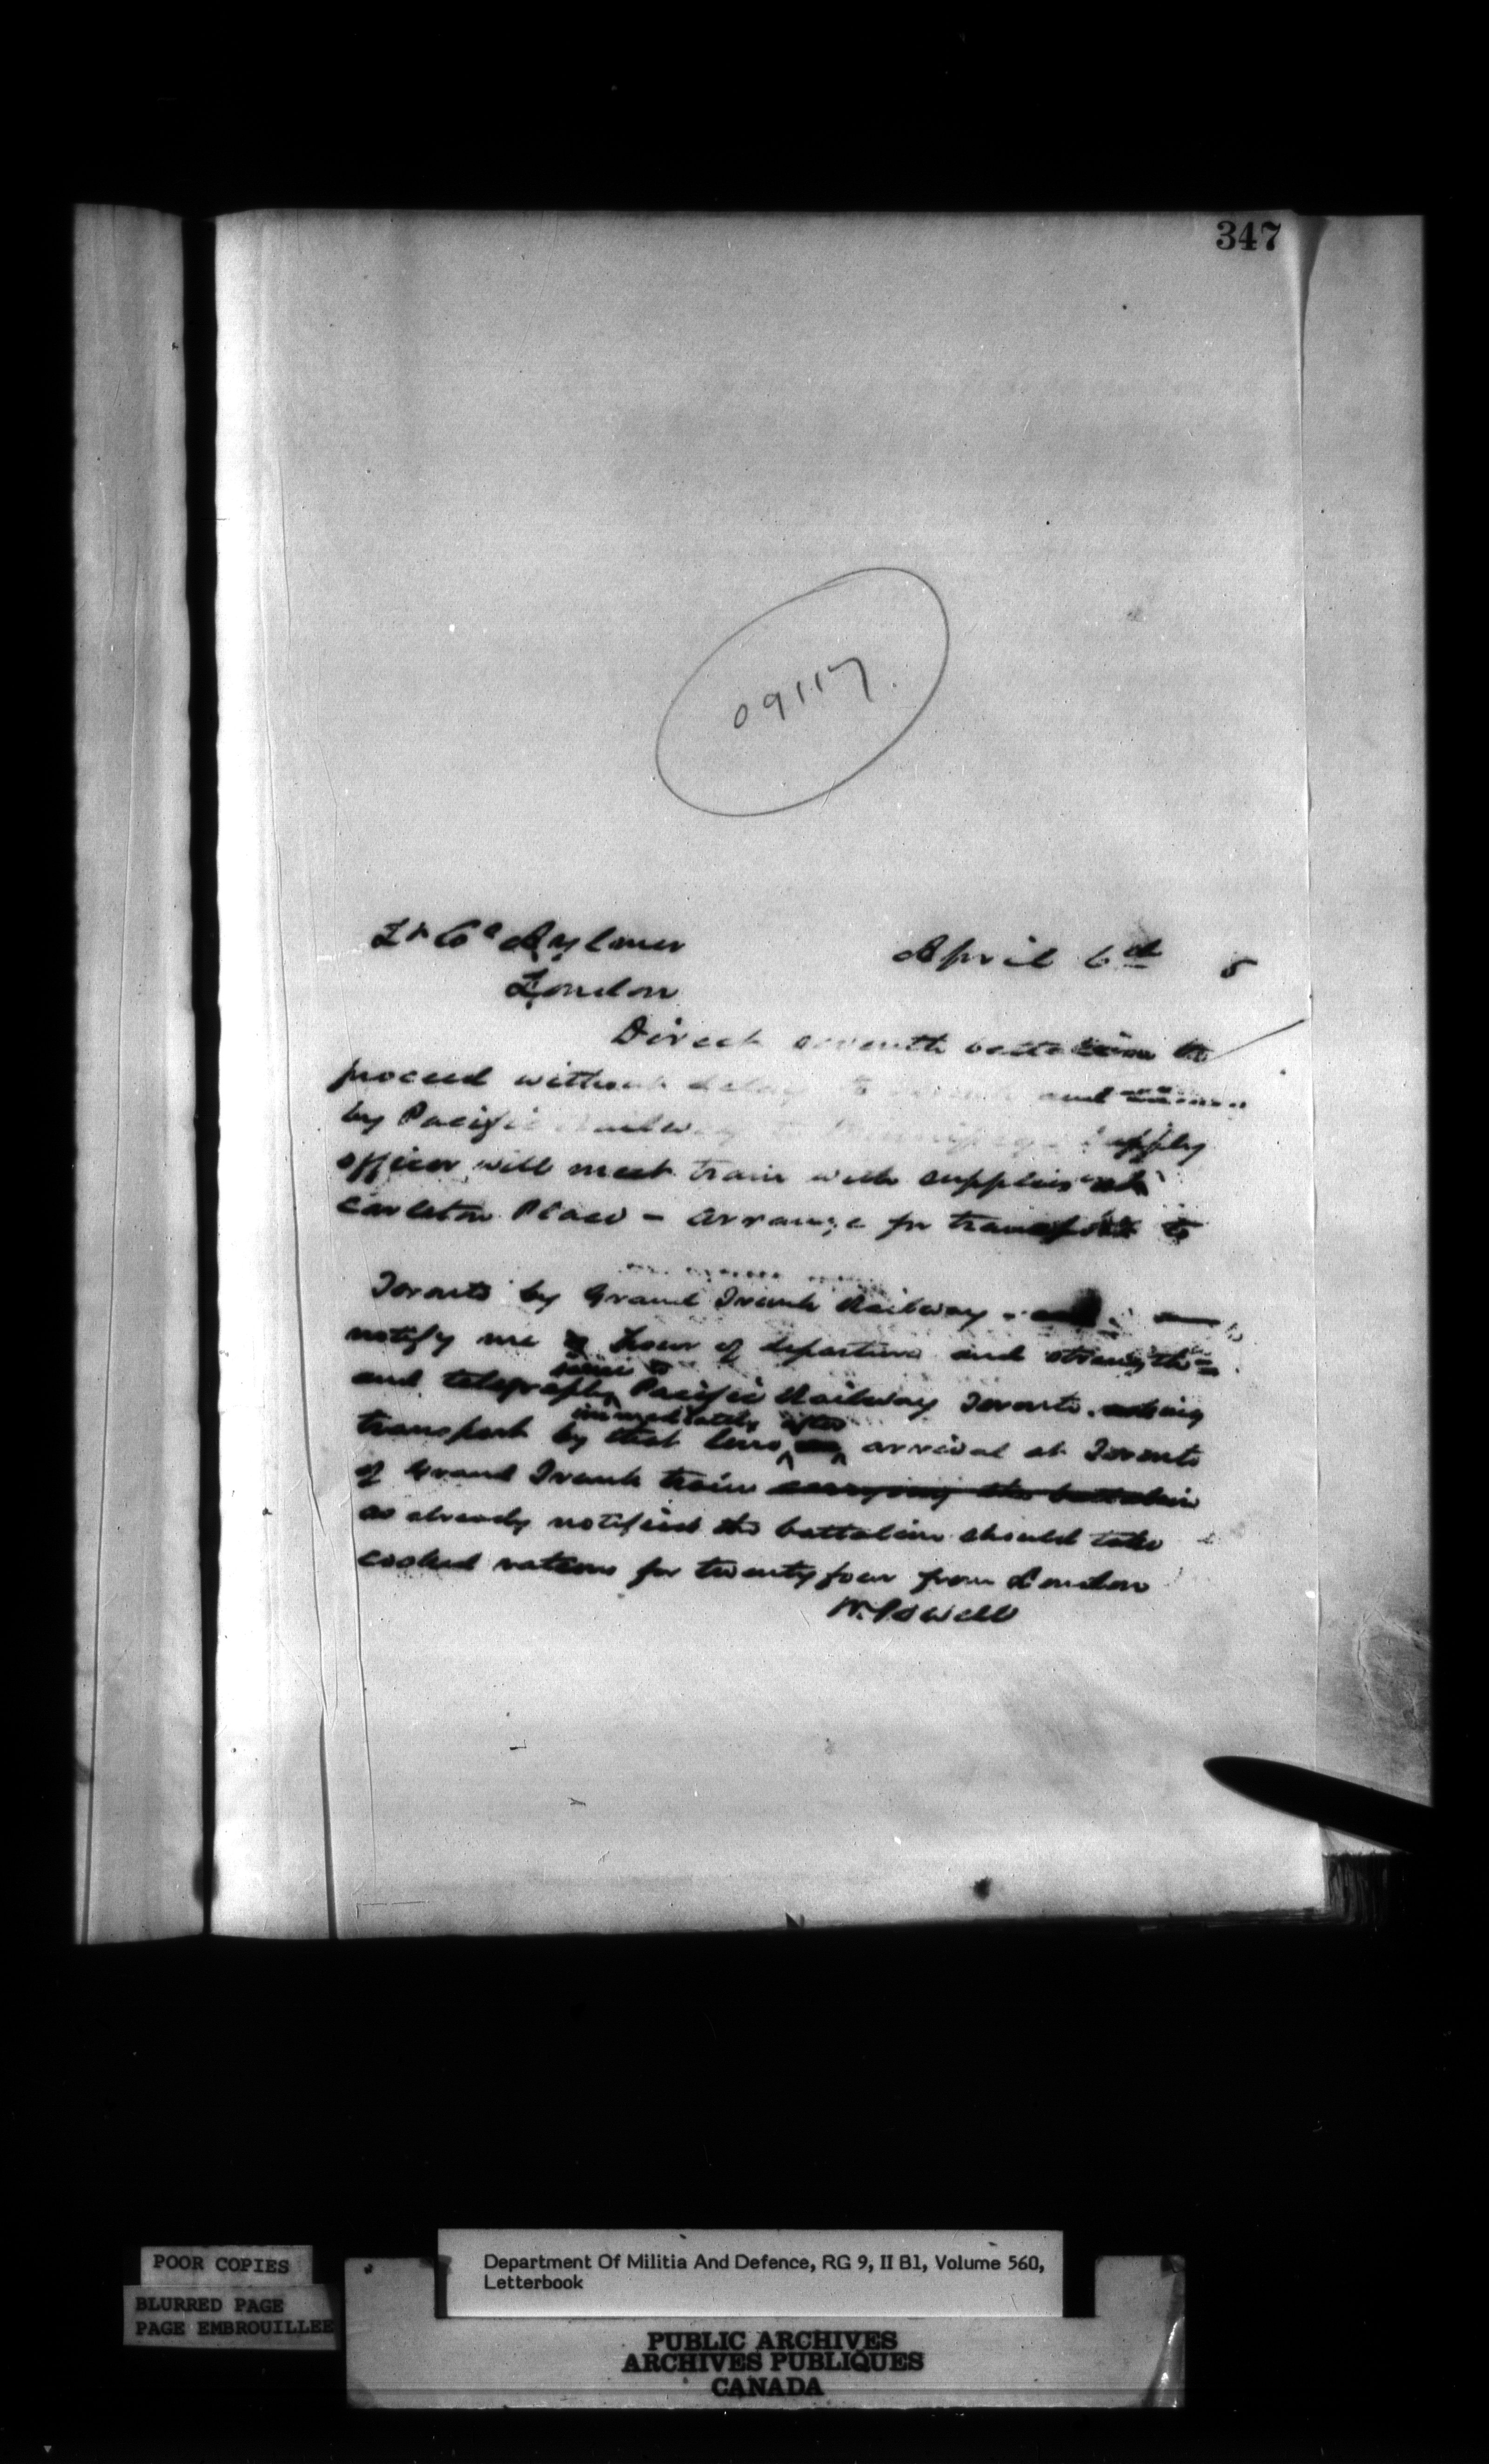 347
09117
Lt Col Aylmer April 6th 5
London
Direct seventh battalion to
proceed without delay to and
by Pacific Railway to Winnipeg Supply
officer will meet train with supplies at
Carleton Place – arrange for transport to
Toronto by Grand Trunk Railway
notify me hour of departure and strength
and telegraph Pacific Railway Toronto asking
immediately after
transport by that line arrival at Toronto
of Grand Trunk train carrying the battalion
as already notified the battalion should take
cooked rations for twenty four from London
W. Powell
POOR COPIES
BLURRED PAGE
PAGE EMBROUILLEE
Department Of Militia And Defence, RG 9, II B1, Volume 560,
Letterbook
PUBLIC ARCHIVES
ARCHIVES PUBLIQUES
CANADA